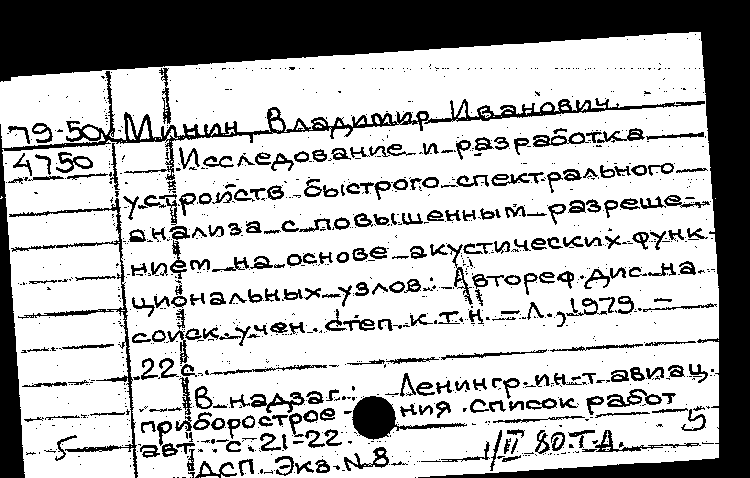 79-50к Минин, Владимир Иванович.
4750 Исследование и разработка
устройств быстрого спектрального
анализа с повышенным разреше-
нием на основе акустических функ-
циональных узлов: Автореф. дис. на
соиск. учен. степ. к.т.н. - Л., 1979. -
22 с.
В надзаг.: Ленингр. ин-т авиац.
приборострое- ния. Список работ
5 авт.: с. 21-22. 5
ДСП. Экз. N 8 1/II 80. Т.Д.